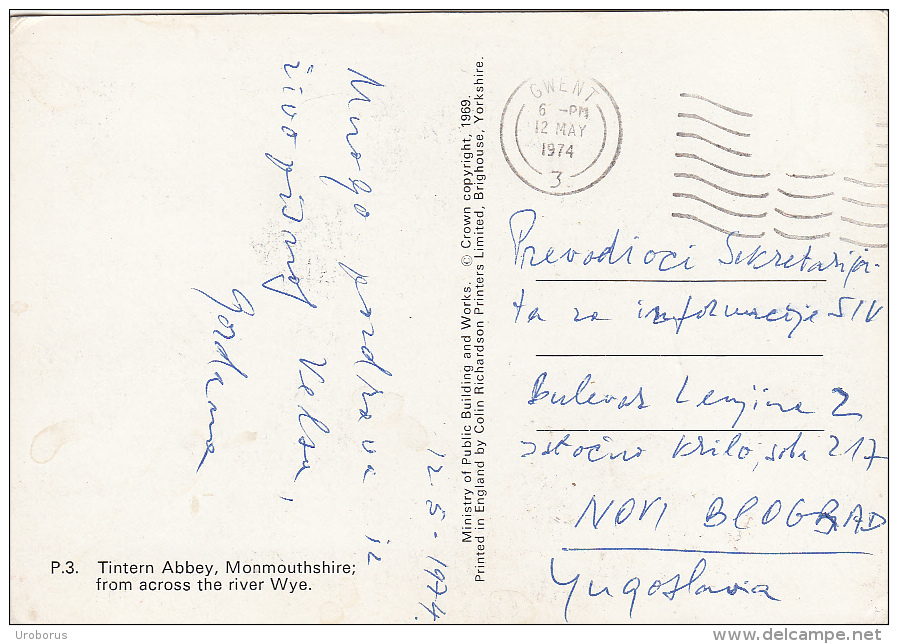 12.5.1974.
Mnogo pozdrava iz
živopisnog Velsa,
Gordana
P.3. Tintern Abbey, Monmouthshire;
from across the river Wye.
Ministry of Public Building and Works. © Crown copyright, 1969.
Printed in England by Colin Richardson Printers Limited, Brighouse, Yorkshire.
GWENT
6 -PM
12 MAY
1974
3
Prevodioci Sekretarija-
ta za informacije SIV
Bulevar Lenjina 2
istočno krilo, soba 217
NOVI BEOGRAD
Yugoslavia
Uroborus
delcampe.net